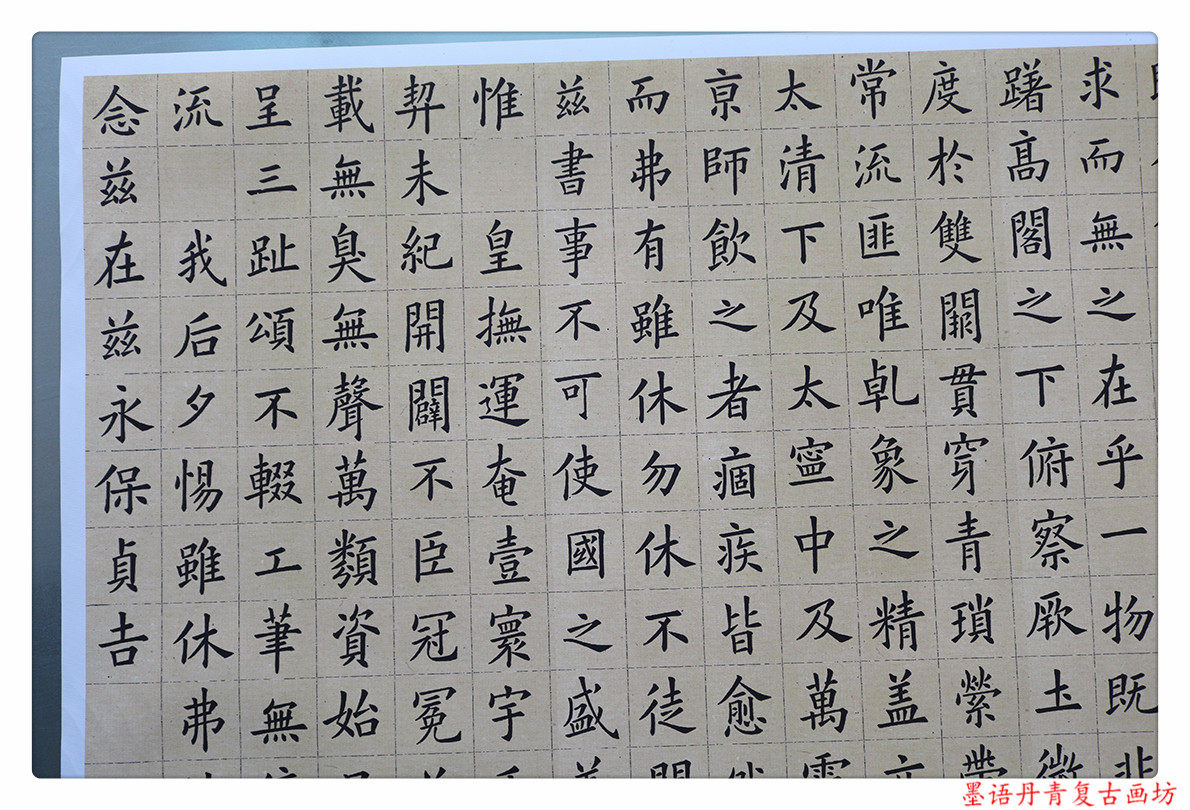 求而無之在乎一物既
躇髙閣之下俯察厥土微
度於雙闕貫穿青瑣縈帶
常流匪唯乹象之精盖
太清下及太寧中及萬
亰師飲之者痼疾皆愈
而弗有雖休勿休不徒
兹書事不可使國之盛
惟 皇撫運奄壹寰宇
契未紀開闢不臣冠冕
載無臭無聲萬類資始
呈三趾頌不輟工筆無
流 我后夕惕雖休弗
念兹在兹永保貞吉
墨语丹青复古画坊